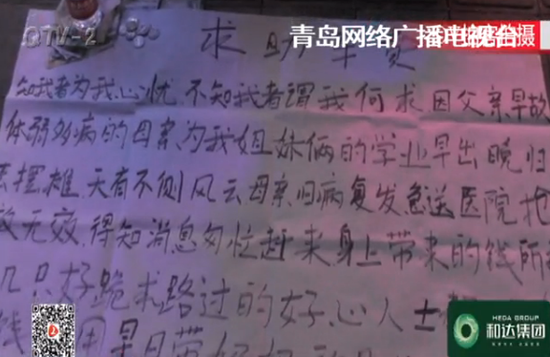 QTV-2
青岛网络广播电视台
摄
求助
知我者为我心忧不知我者谓我何求因父亲早故
体弱多病的母亲为我姐妹俩的学业早出晚归
摆摊天有不侧风云母亲旧病复发急送医院抢
无效得知消息匆忙赶来身上带来的钱所
几只好跪求路过的好心人士
钱
HEDA GROUP
和达集团